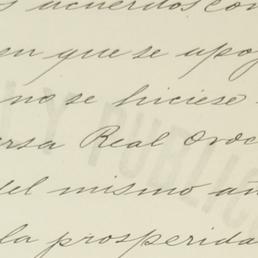 s acuerdos con
en que se apoy
no se hiciese
ersa Real Orde
del mismo añ
la prosperida